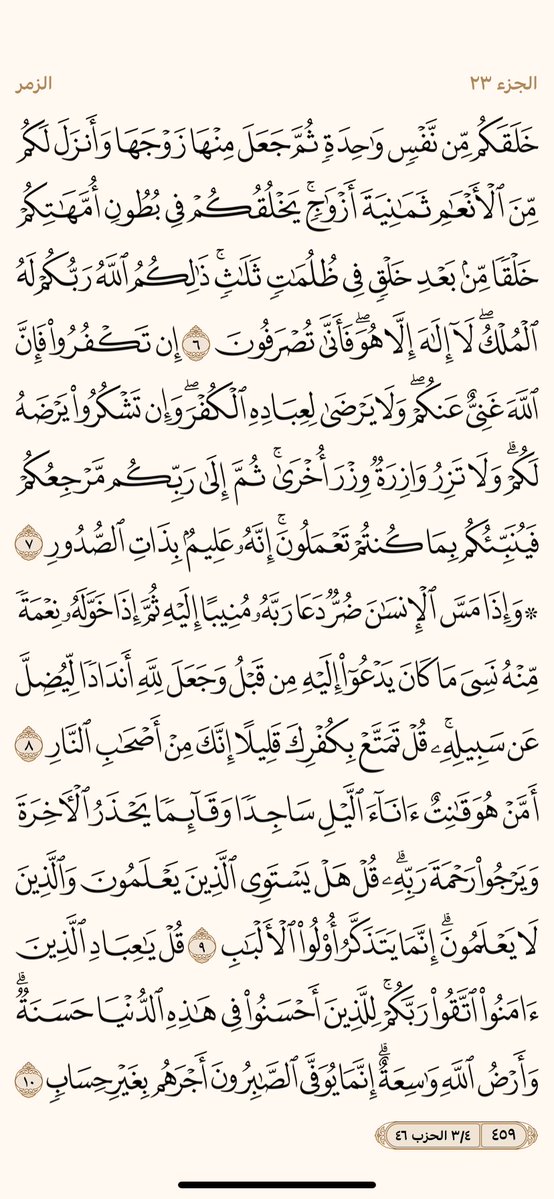 الجزء ٢٣
الزمر
خَلَقَكُم مِّن نَّفْسٍ وَٰحِدَةٍ ثُمَّ جَعَلَ مِنْهَا زَوْجَهَا وَأَنزَلَ لَكُم
مِّنَ ٱلْأَنْعَٰمِ ثَمَٰنِيَةَ أَزْوَٰجٍ ۚ يَخْلُقُكُمْ فِى بُطُونِ أُمَّهَٰتِكُمْ
خَلْقًا مِّنۢ بَعْدِ خَلْقٍ فِى ظُلُمَٰتٍ ثَلَٰثٍ ۚ ذَٰلِكُمُ ٱللَّهُ رَبُّكُمْ لَهُ
ٱلْمُلْكُ ۖ لَآ إِلَٰهَ إِلَّا هُوَ ۖ فَأَنَّىٰ تُصْرَفُونَ ٦ إِن تَكْفُرُوا۟ فَإِنَّ
ٱللَّهَ غَنِىٌّ عَنكُمْ ۖ وَلَا يَرْضَىٰ لِعِبَادِهِ ٱلْكُفْرَ ۖ وَإِن تَشْكُرُوا۟ يَرْضَهُ
لَكُمْ ۗ وَلَا تَزِرُ وَازِرَةٌ وِزْرَ أُخْرَىٰ ۚ ثُمَّ إِلَىٰ رَبِّكُم مَّرْجِعُكُمْ
فَيُنَبِّئُكُم بِمَا كُنتُمْ تَعْمَلُونَ ۚ إِنَّهُۥ عَلِيمٌۢ بِذَاتِ ٱلصُّدُورِ ٧
۞ وَإِذَا مَسَّ ٱلْإِنسَٰنَ ضُرٌّ دَعَا رَبَّهُۥ مُنِيبًا إِلَيْهِ ثُمَّ إِذَا خَوَّلَهُۥ نِعْمَةً
مِّنْهُ نَسِىَ مَا كَانَ يَدْعُوٓا۟ إِلَيْهِ مِن قَبْلُ وَجَعَلَ لِلَّهِ أَندَادًا لِّيُضِلَّ
عَن سَبِيلِهِۦ ۚ قُلْ تَمَتَّعْ بِكُفْرِكَ قَلِيلًا إِنَّكَ مِنْ أَصْحَٰبِ ٱلنَّارِ ٨
أَمَّنْ هُوَ قَٰنِتٌ ءَانَآءَ ٱلَّيْلِ سَاجِدًا وَقَآئِمًا يَحْذَرُ ٱلْءَاخِرَةَ
وَيَرْجُوا۟ رَحْمَةَ رَبِّهِۦ ۗ قُلْ هَلْ يَسْتَوِى ٱلَّذِينَ يَعْلَمُونَ وَٱلَّذِينَ
لَا يَعْلَمُونَ ۗ إِنَّمَا يَتَذَكَّرُ أُو۟لُوا۟ ٱلْأَلْبَٰبِ ٩ قُلْ يَٰعِبَادِ ٱلَّذِينَ
ءَامَنُوا۟ ٱتَّقُوا۟ رَبَّكُمْ ۚ لِلَّذِينَ أَحْسَنُوا۟ فِى هَٰذِهِ ٱلدُّنْيَا حَسَنَةٌ ۗ
وَأَرْضُ ٱللَّهِ وَٰسِعَةٌ ۗ إِنَّمَا يُوَفَّى ٱلصَّٰبِرُونَ أَجْرَهُم بِغَيْرِ حِسَابٍ ١٠
٤٥٩ ٣/٤ الحزب ٤٦